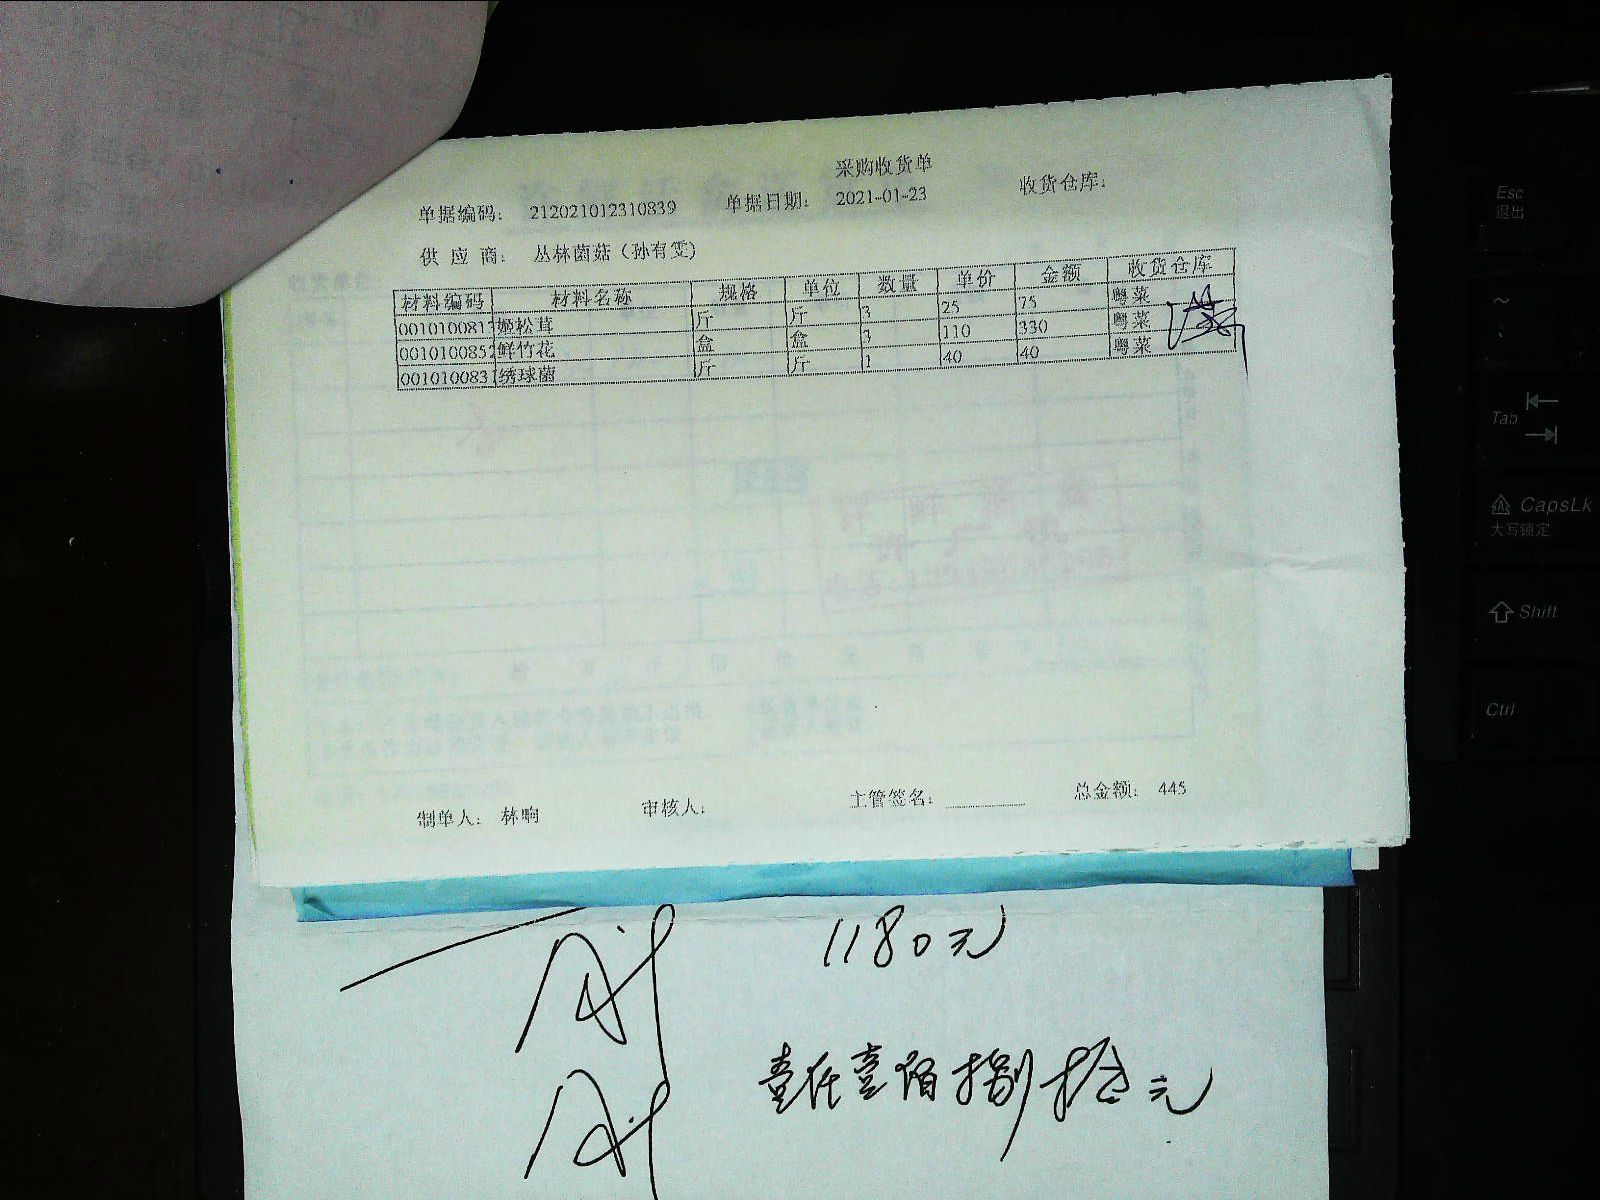 采购收货单
单据编码： 212021012310839 单据日期： 2021-01-23 收货仓库：
供 应 商： 丛林菌菇（孙有雯）
材料编码 材料名称 规格 单位 数量 单价 金额 收货仓库
001010081 姬松茸 斤 斤 3 25 75 粤菜
001010085 鲜竹花 盒 盒 3 110 330 粤菜
001010083 绣球菌 斤 斤 1 40 40 粤菜
制单人： 林响 审核人： 主管签名： 总金额： 445
1180元
壹仟壹佰捌拾元
Esc
退出
~
Tab
CapsLk
大写锁定
Shift
Ctrl